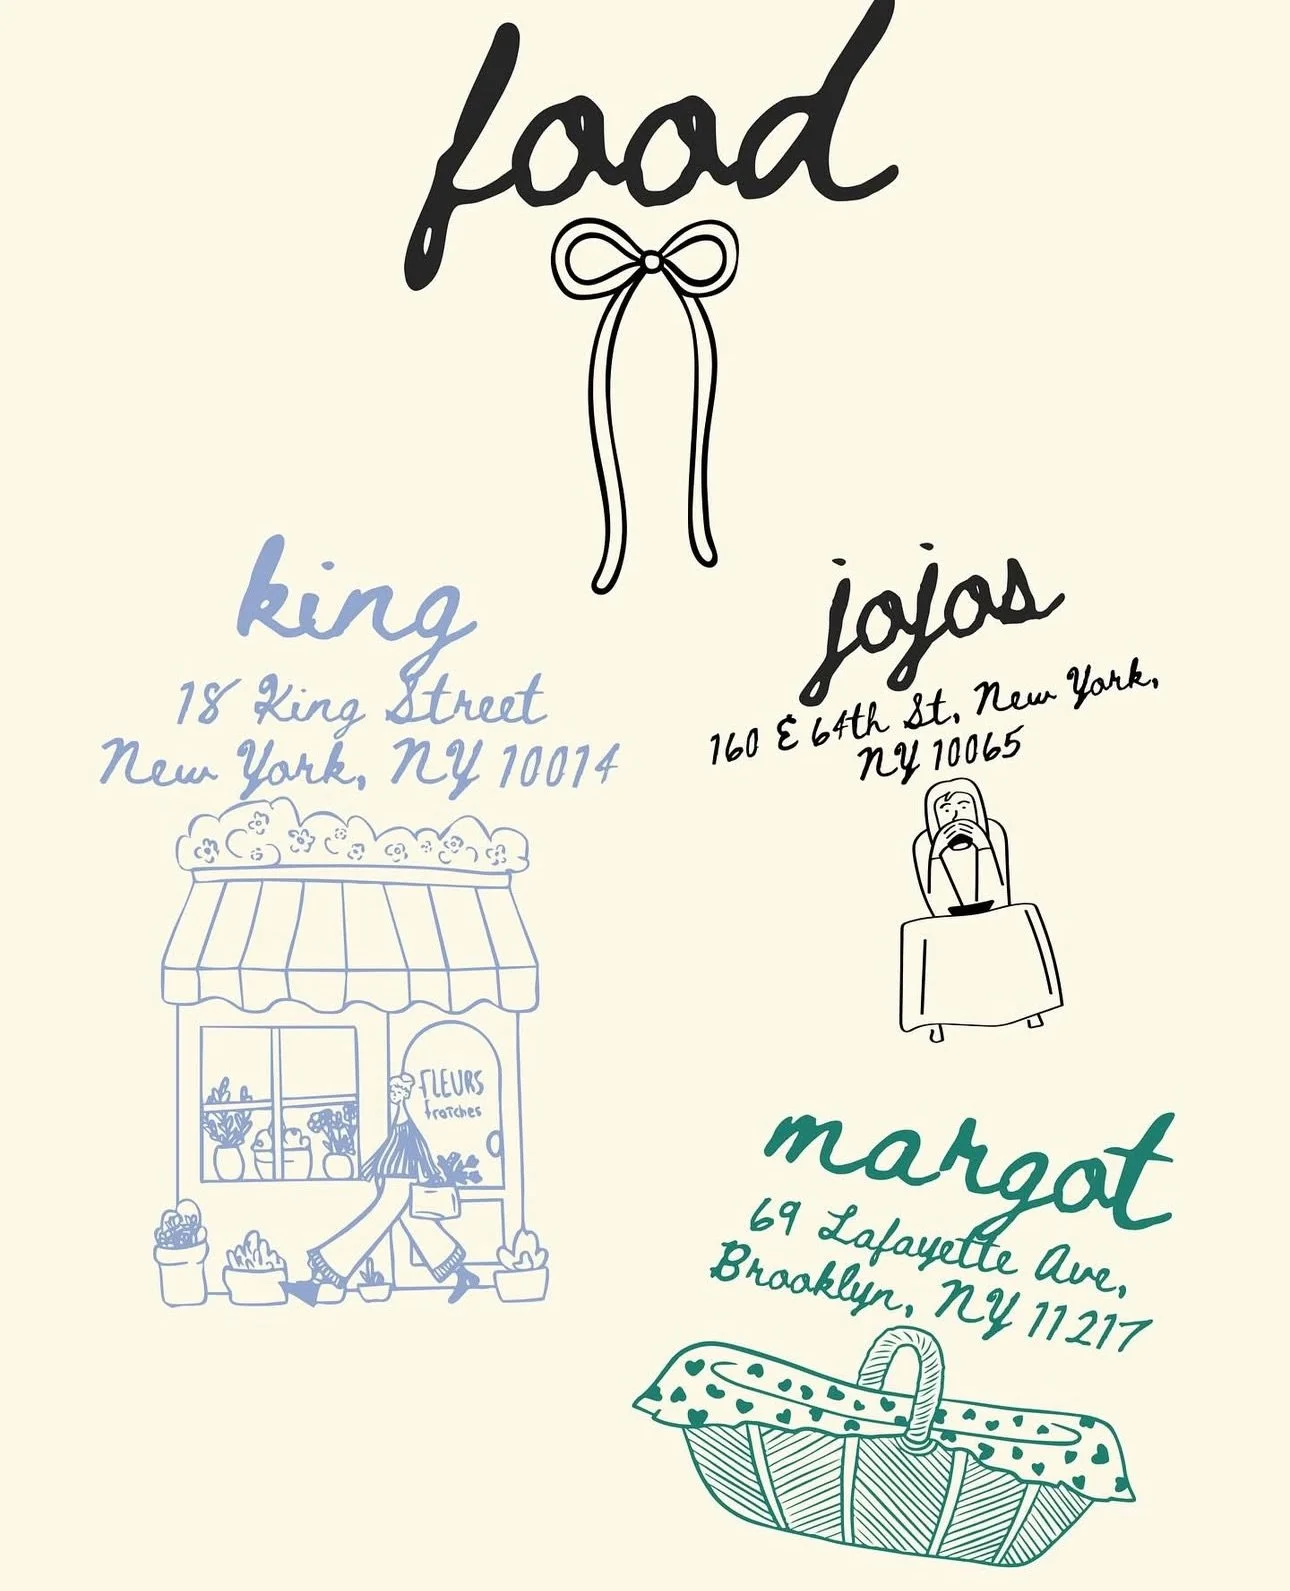 food
king
18 King Street
New York, NY 10014
jojos
160 E 64th St, New York,
NY 10065
FLEURS
fraîches
margot
69 Lafayette Ave,
Brooklyn, NY 11217